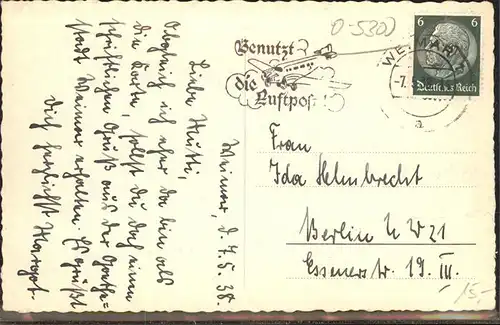 Weimar, d. 7.5.38.
Liebe Mutti,
Obgleich ich eher da bin als
die Karte, sollst du doch einen
schriftlichen Gruß aus der Goethe-
stadt Weimar erhalten. Es grüßt
Dich herzlichst Margot.
0-5300
Benutzt
die
Luftpost!
WEIMAR
-7.
a
6 6
Deutsches Reich
Frau
Ida Helmbrecht
Berlin NW 21
Essenerstr. 19. III.
15.-